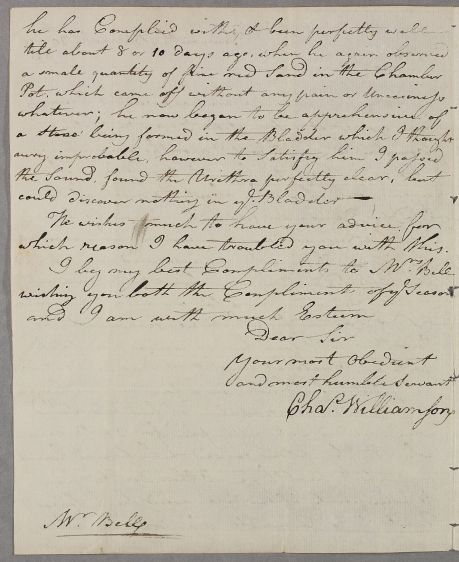 he has Complied with, & been perfectly well
till about 8 or 10 days ago, when he again observed
a small quantity of fine red Sand in the Chamber
Pot, which came off without any pain or Uneasiness
whatever; he now began to be apprehensive of
a Stone being formed in the Bladder which I thought
very improbable, however to Satisfy him I passed
the Sound, found the Urethra perfectly clear, but
could discover nothing in ye. Bladder —
He wishes much to have your advice, for
which reason I have troubled you with this.
I beg my best Compliments to Mrs Bell
wishing you both the Compliment of ye Season
and I am with much Esteem
Dear Sir
Your most Obedient
and most humble Servant
Chas. Williamson
Mr. Bell